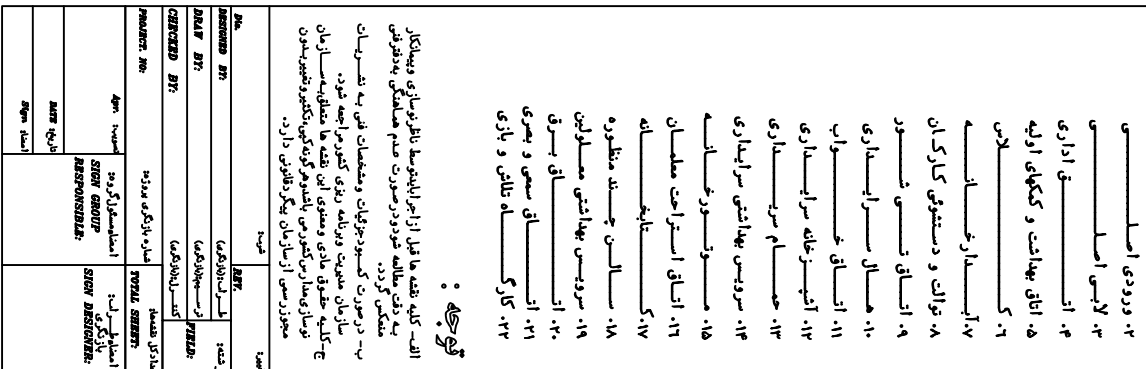 ۲. ورودی اصلی
۳. لابی اصلی
۴. اتاق اداری
۵. اتاق بهداشت و کمکهای اولیه
۶. کلاس
۷. آبدارخانه
۸. توالت و دستشوئی کارکنان
۹. اتاق تی شور
۱۰. هال سرایداری
۱۱. اتاق خواب
۱۲. آشپزخانه سرایداری
۱۳. حمام سرایداری
۱۴. سرویس بهداشتی سرایداری
۱۵. موتورخانه
۱۶. اتاق استراحت معلمان
۱۷. کتابخانه
۱۸. سالن چند منظوره
۱۹. سرویس بهداشتی معلولین
۲۰. اتاق برق
۲۱. اتاق سمعی و بصری
۲۲. کارگاه تلاش و بازی
توجه :
الف- کلیه نقشه ها قبل از اجرا بایدتوسط ناظرنوسازی وپیمانکار
به دقت مطالعه شودودرصورت عدم هماهنگی به دفترفنی
منعکس گردد.
ب- درصورت کمبودجزئیات ومشخصات فنی به نشریات
سازمان مدیریت وبرنامه ریزی کشورمراجعه شود.
ج-کلیه حقوق مادی ومعنوی این نقشه ها متعلق به سازمان
نوسازی مدارس کشورمی باشدوهرگونه کپی،تکثیروتغییربدون
مجوزرسمی ازسازمان پیگردقانونی دارد.
REV.
DESIGNED BY: طراح:(بازنگری)
DRAW BY: ترسیم:(بازنگری)
CHECKED BY: کنترل:(بازنگری)
رشته:
FIELD:
PROJECT. NO: شماره بازنگری پروژه:
تعدادکل نقشه ها:
TOTAL SHEET:
Apr. تصویب:
امضامسئول گروه:
SIGN GROUP
RESPONSIBLE:
امضاطراح:
بازنگری
SIGN DESIGNER:
DATE تاریخ:
Sign. امضا: